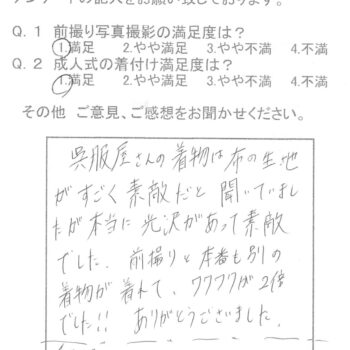 アンケートの記入をお願い致しております。
Q. 1 前撮り写真撮影の満足度は?
1.満足 2.やや満足 3.やや不満 4.不満
Q. 2 成人式の着付け満足度は?
1.満足 2.やや満足 3.やや不満 4.不満
その他 ご意見、ご感想をお聞かせください。
呉服屋さんの着物は布の生地
がすごく素敵だと聞いていまし
たが本当に光沢があって素敵
でした。前撮りと本番も別の
着物が着れて、ワクワクが2倍
でした!! ありがとうございました。